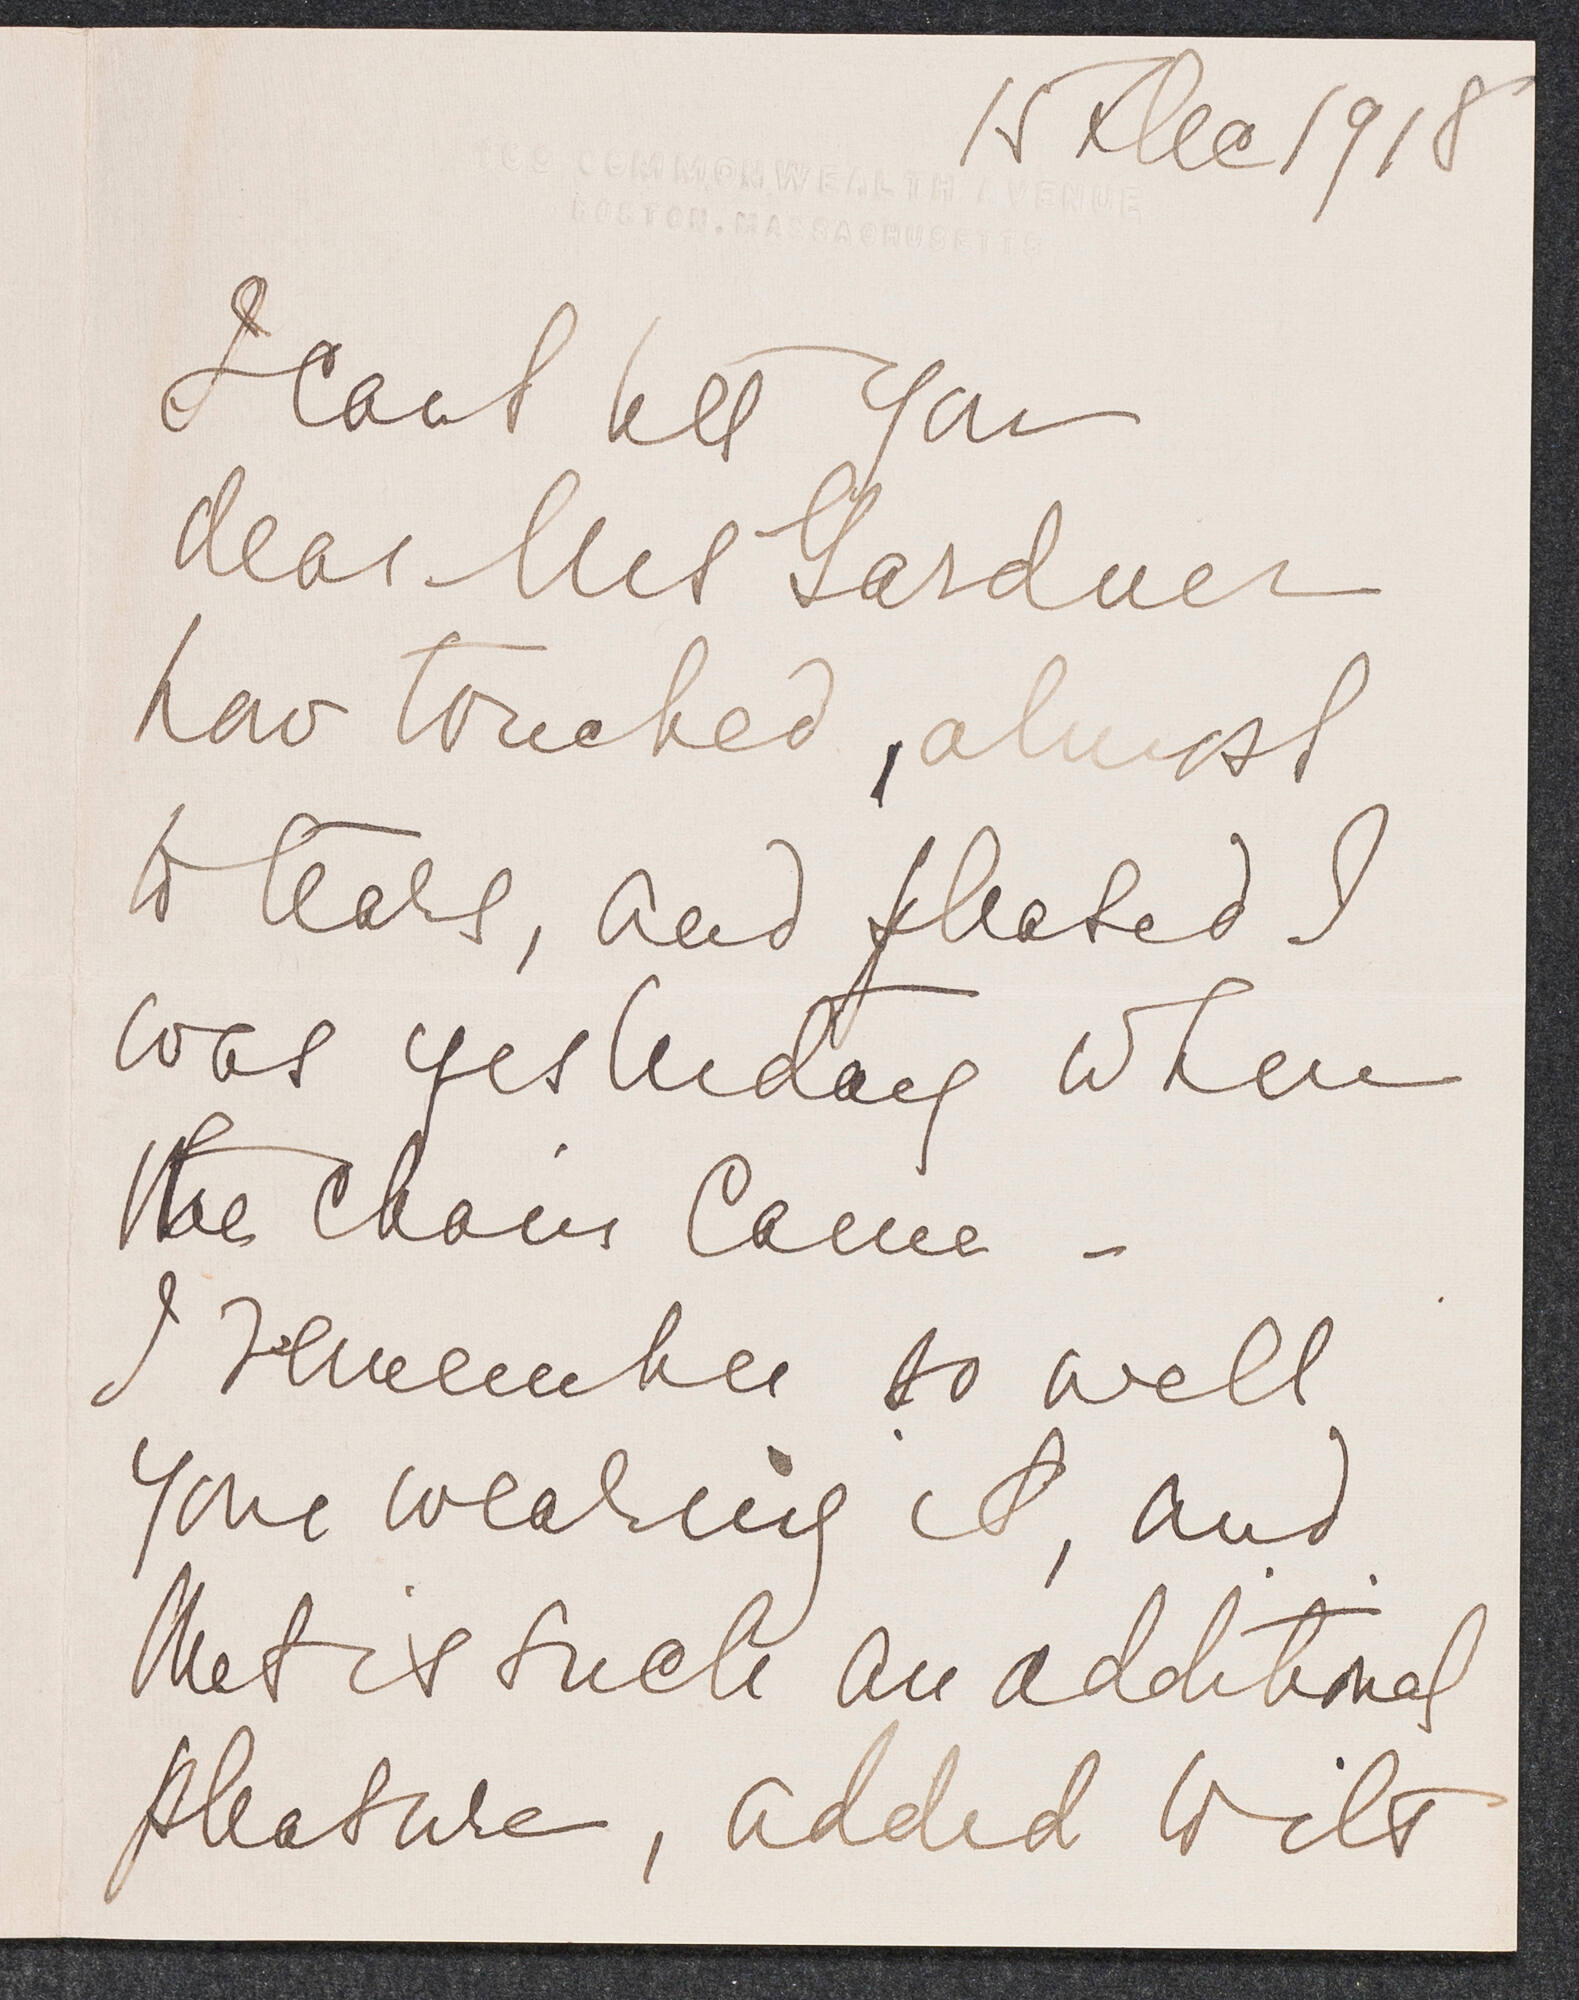 15 Dec 1918
COMMONWEALTH AVENUE
BOSTON, MASSACHUSETTS
I cant tell you
dear Mrs Gardner
how touched, almost
to tears, and pleased I
was yesterday when
the chain came -
I remember so well
your wearing it, and
that is such an additional
pleasure, added to its